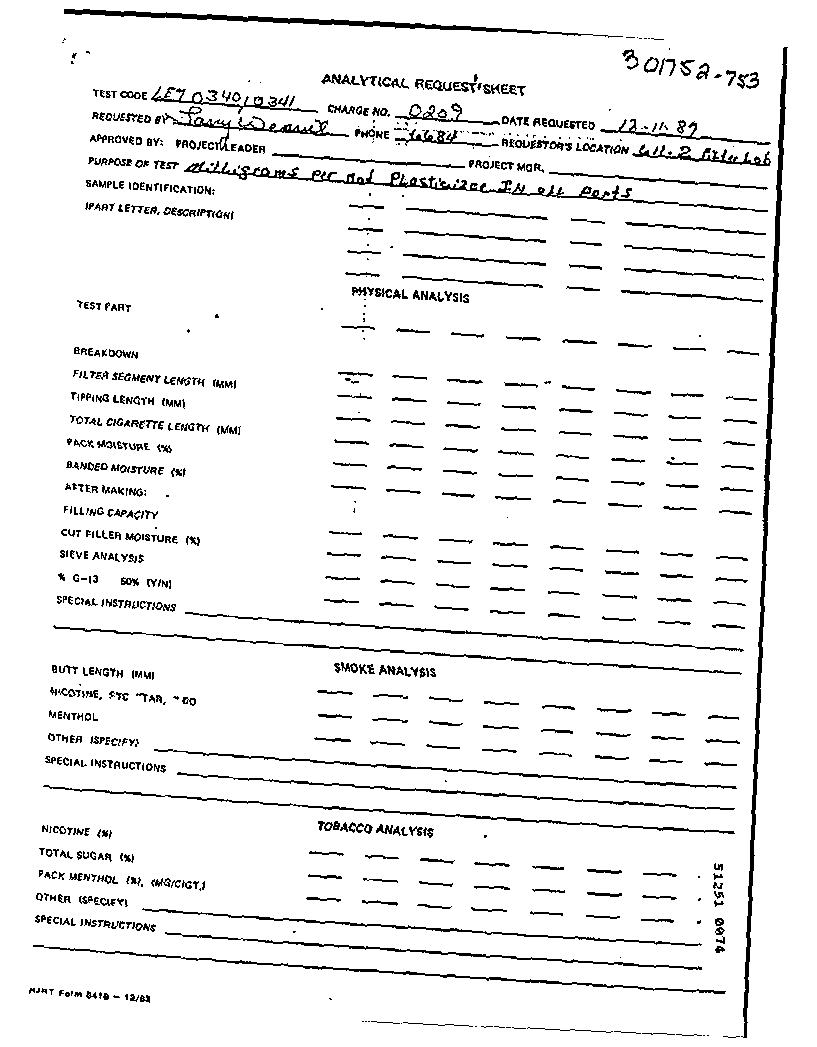 301752-753
ANALYTICAL REQUEST SHEET
TEST CODE LE7 0340/0341 CHARGE NO. 0209 DATE REQUESTED 12-11-89
REQUESTED BY: Larry PHONE 6684 REQUESTOR'S LOCATION 611-2 Filter Lab
APPROVED BY: PROJECT LEADER PROJECT MGR.
PURPOSE OF TEST Milligrams per rod Plasticizer IN all parts
SAMPLE IDENTIFICATION:
(PART LETTER, DESCRIPTION)
PHYSICAL ANALYSIS
TEST PART
BREAKDOWN
FILTER SEGMENT LENGTH (MM)
TIPPING LENGTH (MM)
TOTAL CIGARETTE LENGTH (MM)
PACK MOISTURE (%)
BANDED MOISTURE (%)
AFTER MAKING:
FILLING CAPACITY
CUT FILLER MOISTURE (%)
SIEVE ANALYSIS
% G-13 50% (Y/N)
SPECIAL INSTRUCTIONS
SMOKE ANALYSIS
BUTT LENGTH (MM)
NICOTINE, FTC "TAR, " CO
MENTHOL
OTHER (SPECIFY)
SPECIAL INSTRUCTIONS
TOBACCO ANALYSIS
NICOTINE (%)
TOTAL SUGAR (%)
PACK MENTHOL (%), (MG/CIGT.)
OTHER (SPECIFY)
SPECIAL INSTRUCTIONS
51251 0074
RJRT Form 8419 - 12/83